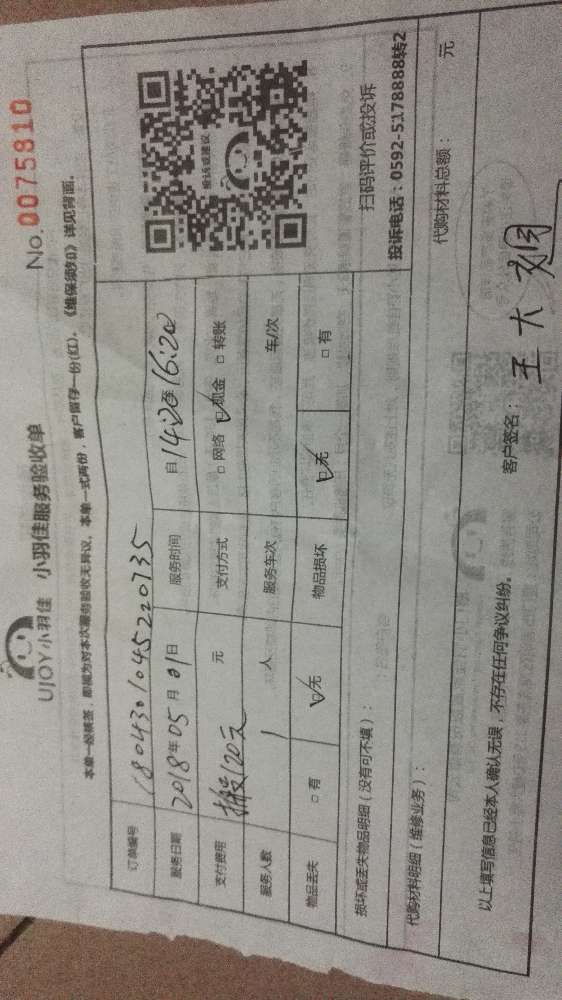 UJOY小羽佳 小羽佳服务验收单
No.0075810
本单一经核签，即视为对本次服务验收无异议，本单一式两份，客户留存一份(红)，《维保须知》详见背面。
订单编号 180430104522 0735
服务日期 2018年05月01日 服务时间 自14:20至16:20
支付费用 120元 元 支付方式 □网络 ☑现金 □转账
服务人数 1 人 服务车次 车/次
物品丢失 □有 ☑无 物品损坏 ☑无 □有
投诉或建议
扫码评价或投诉
投诉电话：0592-5178888转2
损坏或丢失物品明细（没有可不填）：
代购材料明细（维修业务）：
代购材料总额： 元
以上填写信息已经本人确认无误，不存在任何争议纠纷。
客户签名： 王大